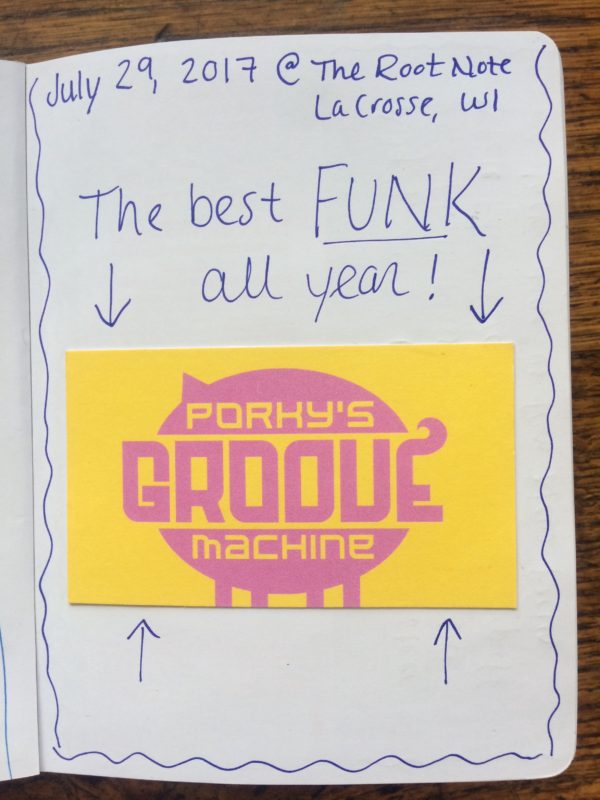 July 29, 2017 @ The Root Note
La Crosse, WI
The best FUNK
all year!
PORKY'S
GROOVE
MACHINE